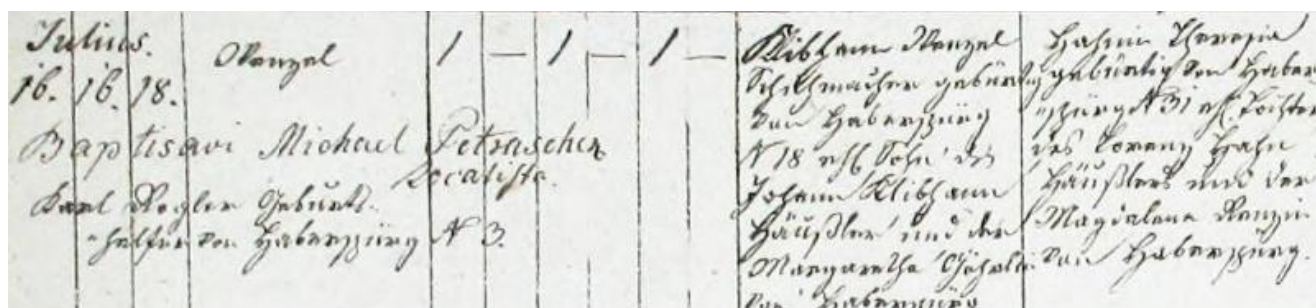 Julius.
16. 16. 18.
Wenzel
1 — 1 — 1 —
Baptisavi Michael Petraschek
Localista.
Karl Kogler Geburts-
helfer von Haberspürg N 3.
Klibhann Wenzel
Schuhmacher gebürtig
von Haberspürg
N 18 ehl. Sohn des
Johann Klibhann
Häußler und der
Margaretha
von Haberspürg
Hahnin Theresia
gebürtig von Haber
spürg N 31 ehl. Tochter
des Lorenz Hahn
Häußlers und der
Magdalena
von Haberspürg.